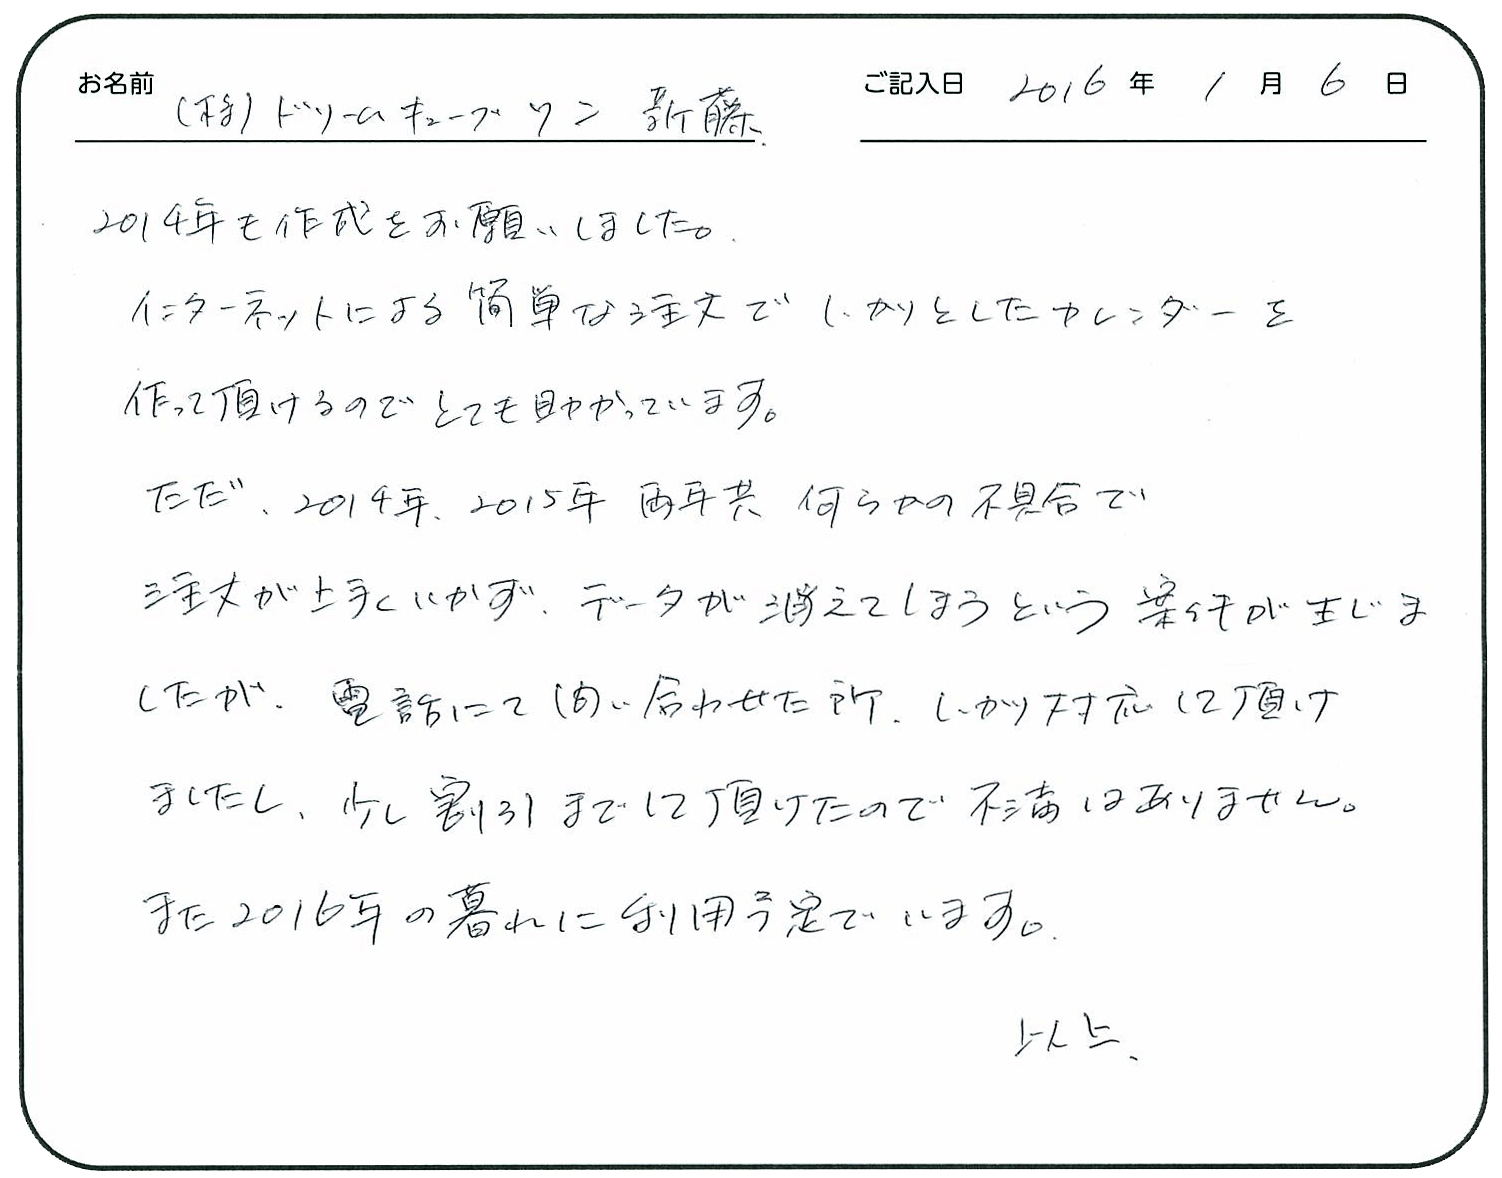 お名前 (株)ドリームキューブワン 新藤 ご記入日 2016年 1月 6日
2014年も作成をお願いしました。
インターネットによる簡単な注文でしっかりとしたカレンダーを
作って頂けるのでとても助かっています。
ただ、2014年、2015年 両年共 何らかの不具合で
注文が上手くいかず、データが消えてしまうという案件が生じま
したが、電話にて問い合わせた所、しっかり対応して頂け
ましたし、少し割引までして頂けたので不満はありません。
また2016年の暮れに利用予定でいます。
以上、